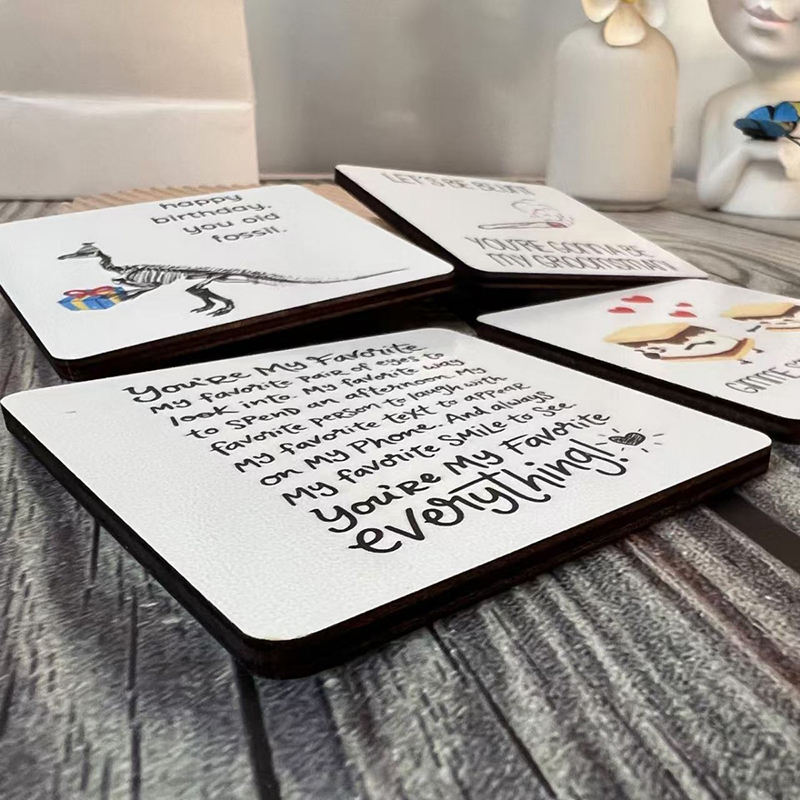 happy
birthday,
you old
fossil.
LET'S BE BLUNT
YOU'RE GONNA BE
MY GROOMSMAN
GIMME
You're My Favorite
My favorite pair of eyes to
look into. My favorite way
to spend an afternoon. My
favorite person to laugh with.
My favorite text to appear
on My Phone. And always
My favorite smile to see.
You're My Favorite
everything!